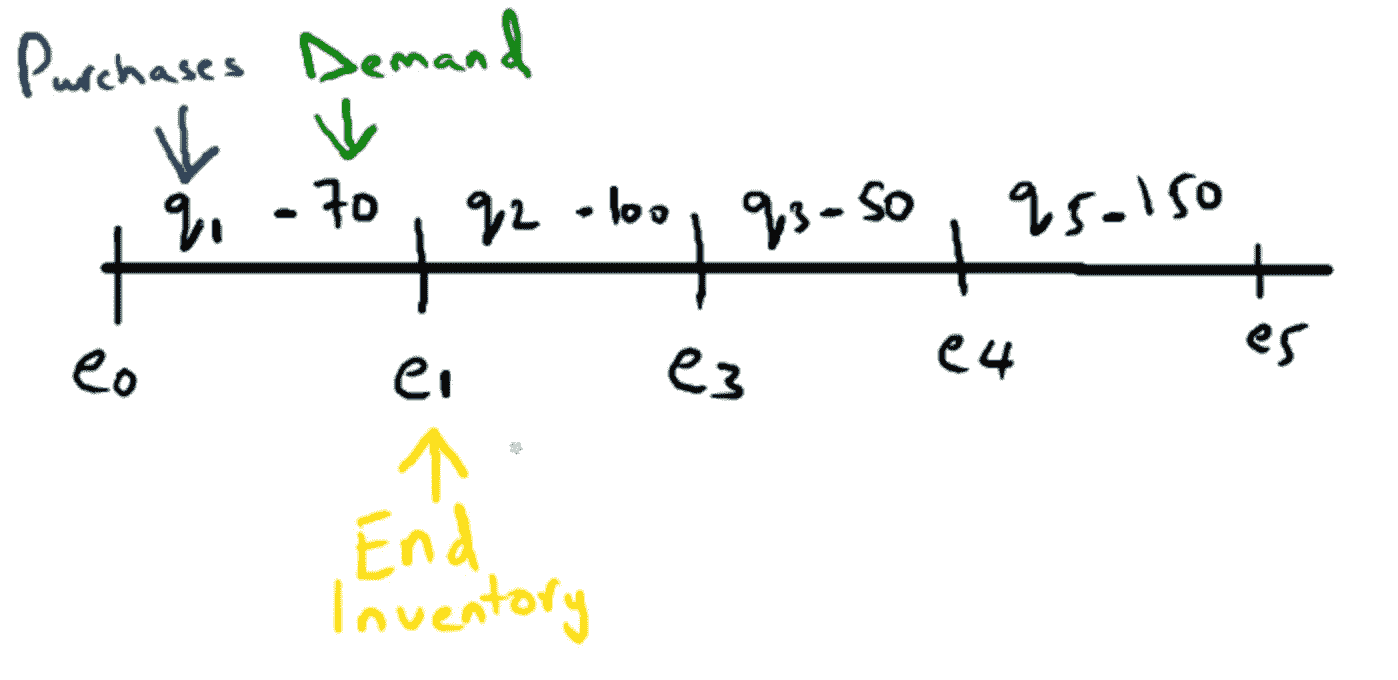 Purchases Demand
q1 - 70 q2 - 100 q3 - 50 q5 - 150
e0 e1 e3 e4 e5
End
Inventory